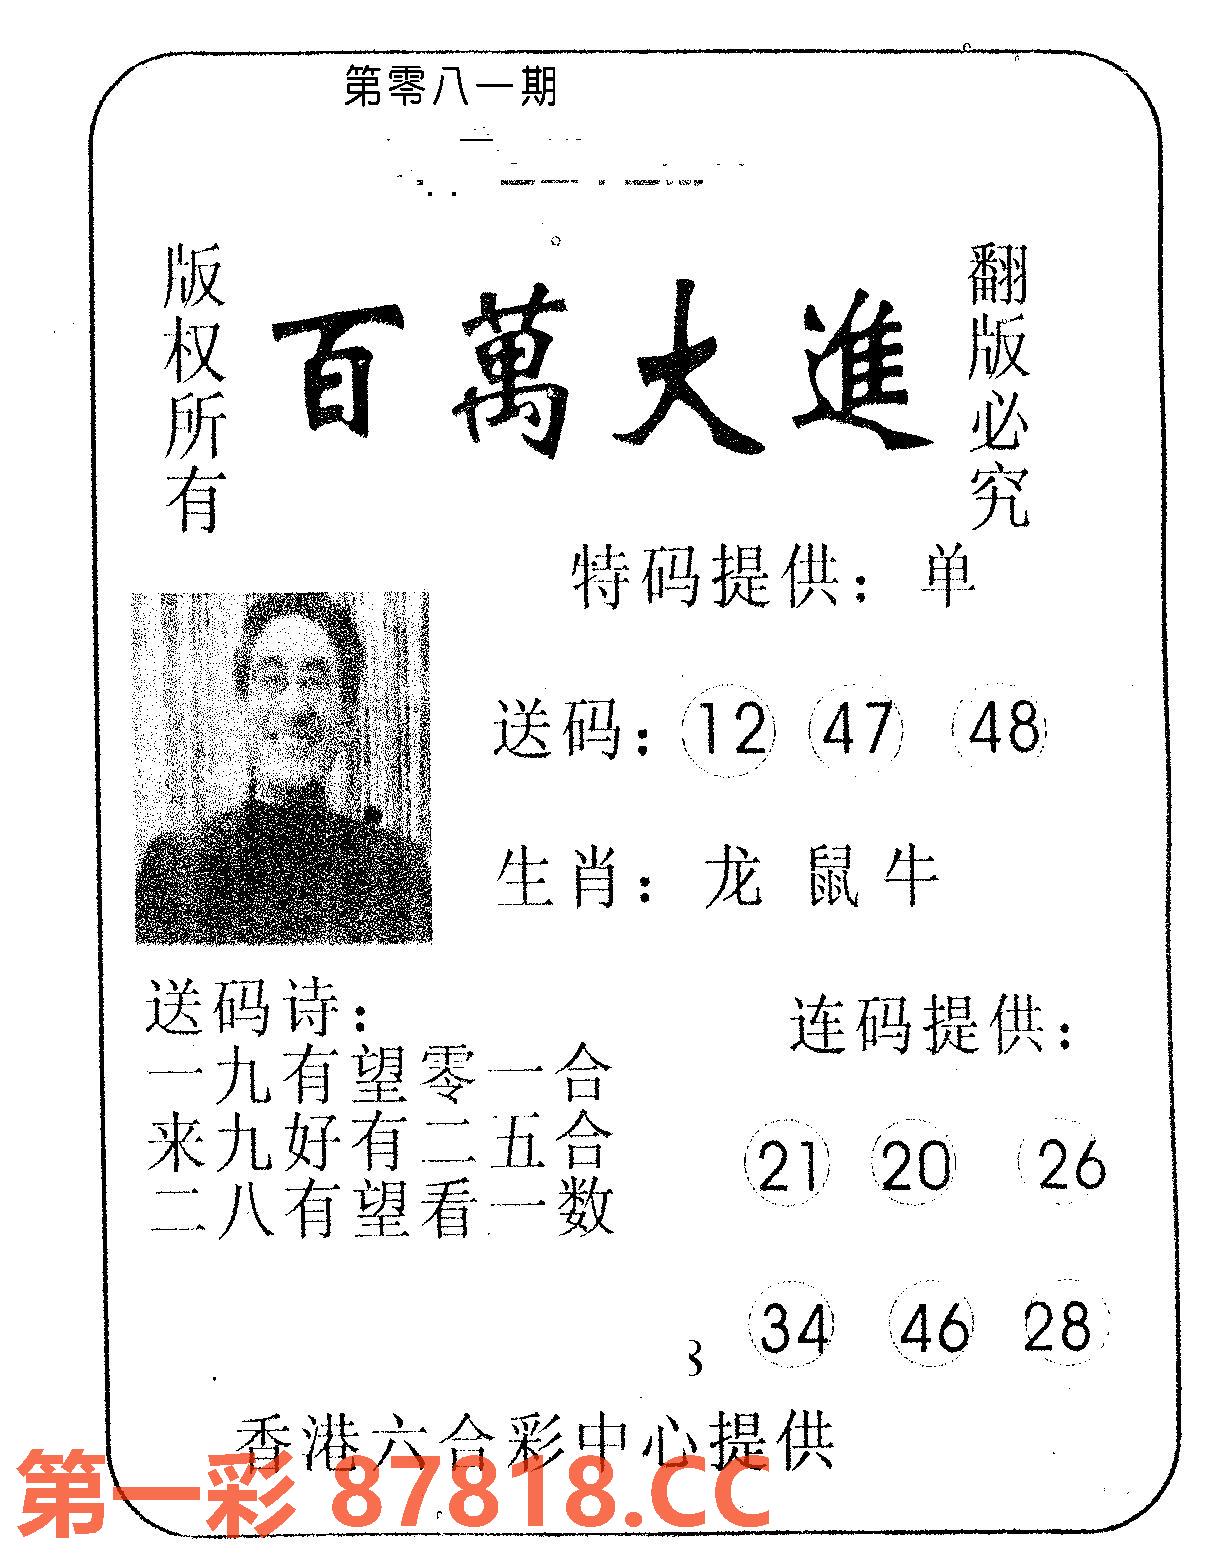 第零八一期
版权所有
百萬大進
翻版必究
特码提供：单
送码：12 47 48
生肖：龙 鼠 牛
送码诗：
一九有望零一合
来九好有二五合
二八有望看一数
连码提供：
21 20 26
34 46 28
3
香港六合彩中心提供
第一彩 87818.CC